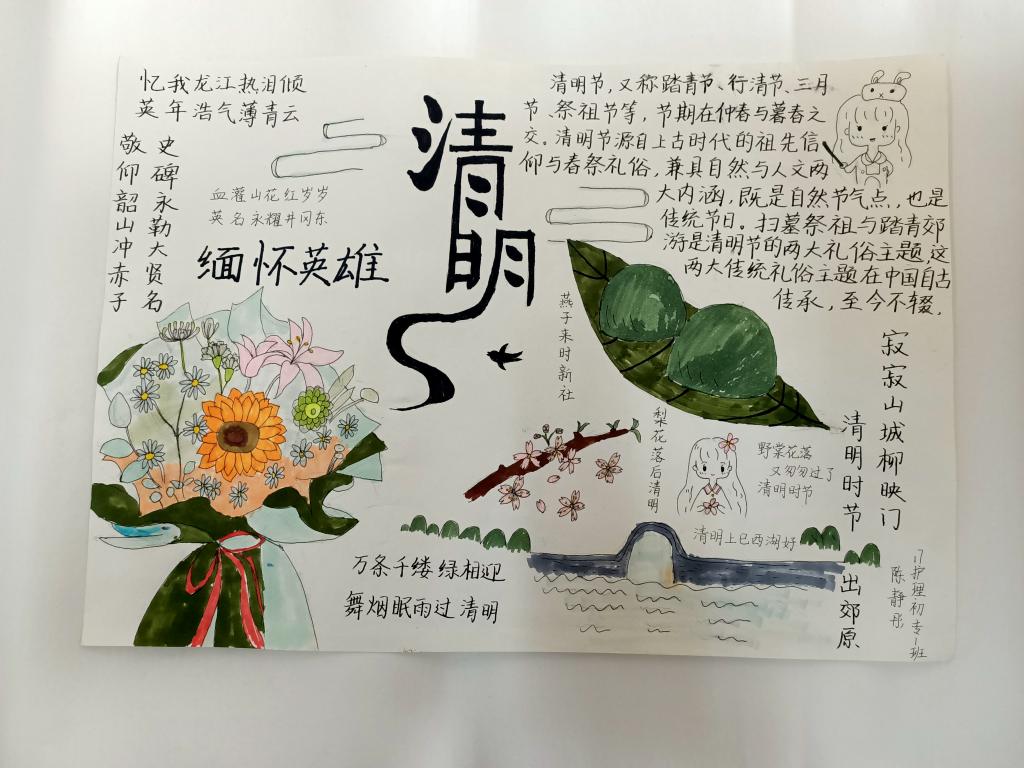 忆我龙江热泪倾
英年浩气薄青云
敬仰韶山冲赤子
史碑永勒大贤名
血灌山花红岁岁
英名永耀井冈东
缅怀英雄
清明
清明节，又称踏青节、行清节、三月
节、祭祖节等，节期在仲春与暮春之
交。清明节源自上古时代的祖先信
仰与春祭礼俗，兼具自然与人文两
大内涵，既是自然节气点，也是
传统节日。扫墓祭祖与踏青郊
游是清明节的两大礼俗主题，这
两大传统礼俗主题在中国自古
传承，至今不辍。
燕子来时新社
梨花落后清明
野棠花落
又匆匆过了
清明时节
清明上巳西湖好
寂寂山城柳映门
清明时节
出郊原
万条千缕绿相迎
舞烟眠雨过清明
17护理初专1班
陈静彤